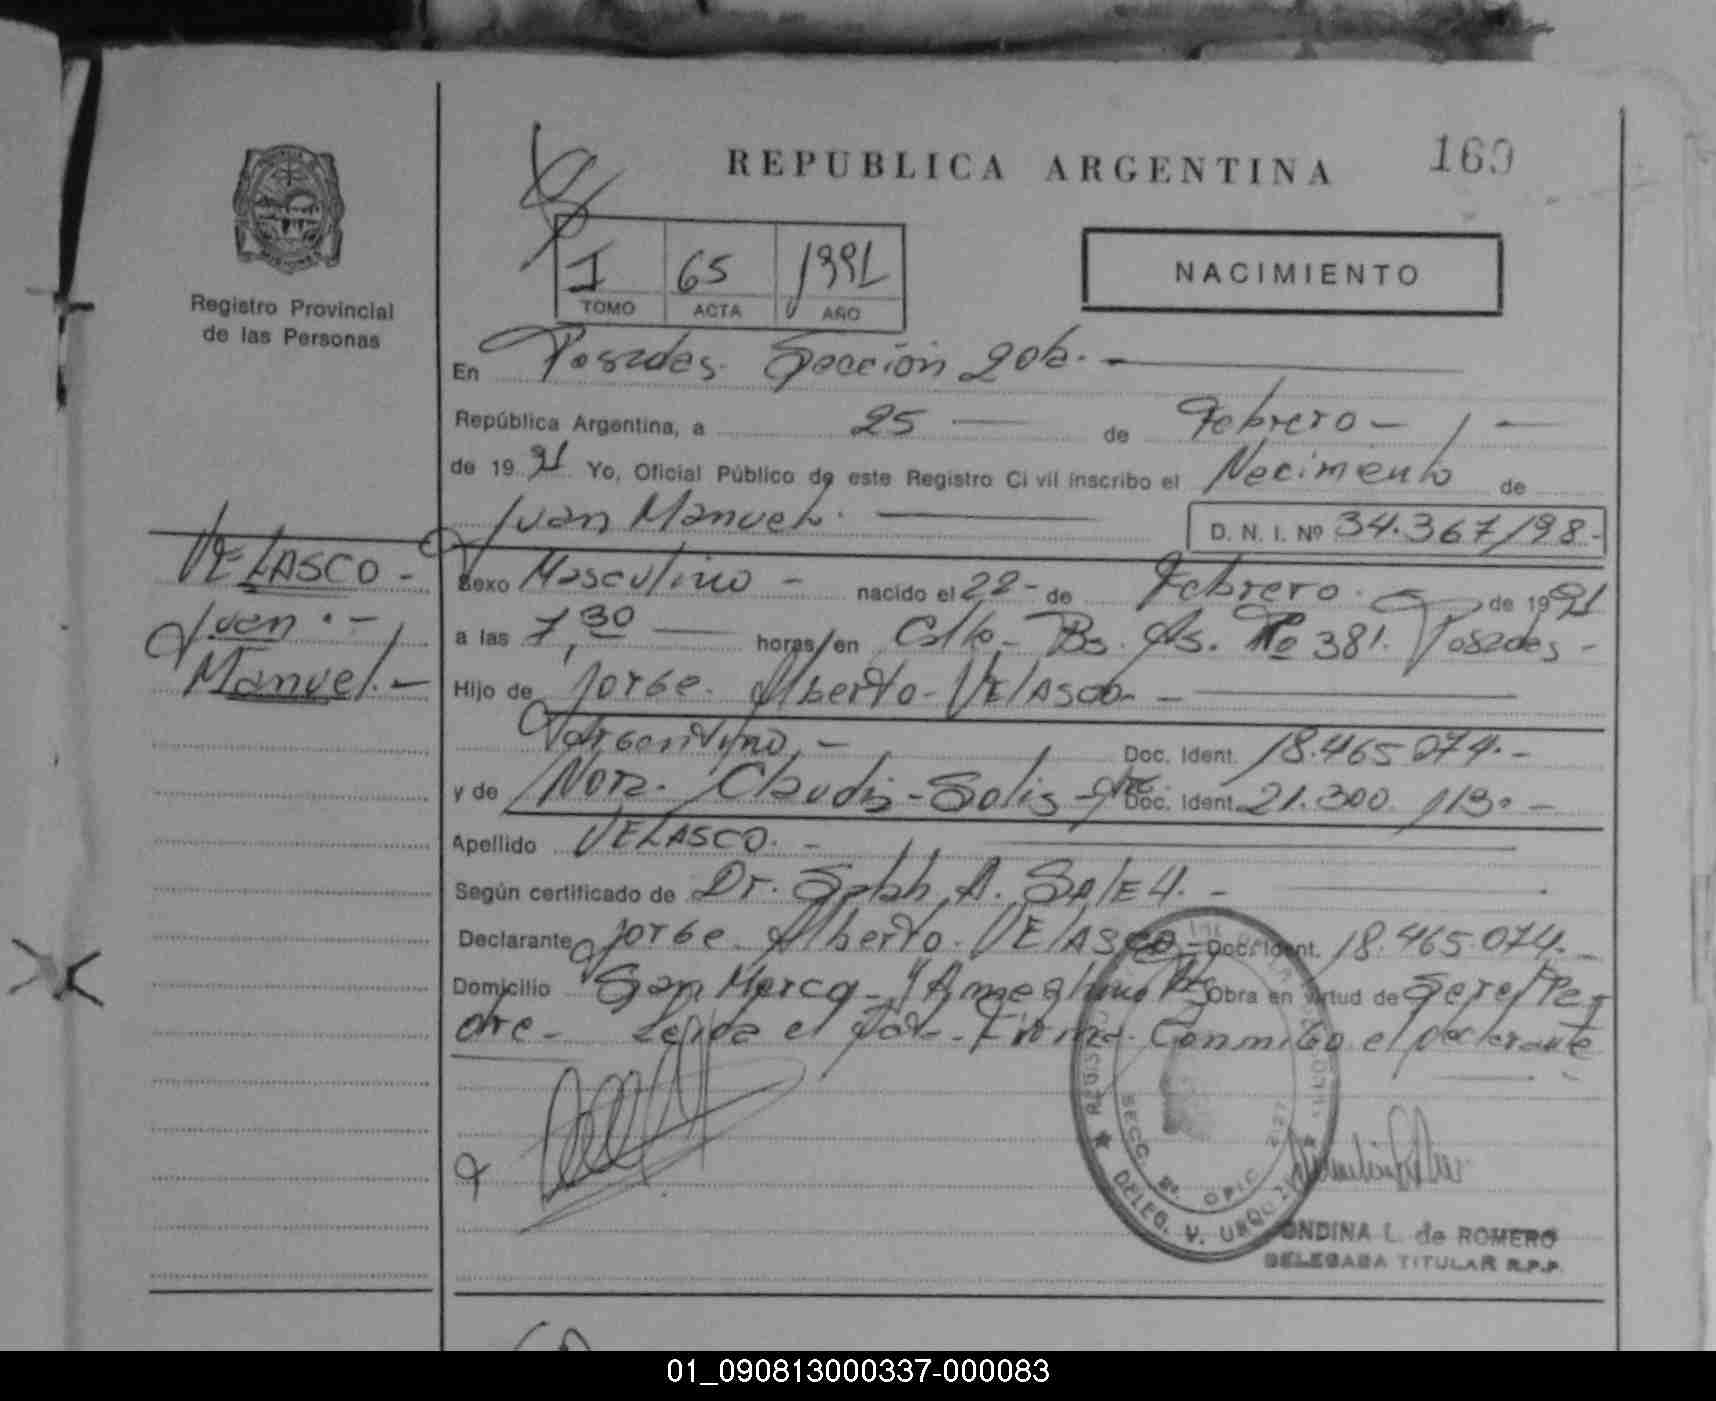 REPUBLICA ARGENTINA
169
Registro Provincial
de las Personas
I 65 1991
TOMO ACTA AÑO
NACIMIENTO
En Posadas. Sección 2da. -
República Argentina, a 25 de Febrero -
de 1991 Yo, Oficial Público de este Registro Civil inscribo el Nacimiento de
Juan Manuel. D. N. I. Nº 34.367198.-
VELASCO -
Juan. -
Manuel. -
Sexo Masculino - nacido el 22 - de Febrero. de 1991
a las 7,30 horas en Calle Bs. As. Nº 381. Posadas -
Hijo de Jorge Alberto VELASCO -
Argentino, - Doc. Ident. 18.465.074.-
y de Nora Claudia Solis - Doc. Ident. 21.300.113.-
Apellido VELASCO. -
Según certificado de Dr. A. SALEH. -
Declarante Jorge Alberto VELASCO - Doc. Ident. 18.465.074.-
Domicilio San Marco y Ameghino Obra en virtud de Ser el Pa-
dre - Leída el Firma Conmigo el declarante
REGIS
SECC. 2ª. OPIC. 2127
DELEG. V. URQUIZA
ONDINA L. de ROMERO
DELEGADA TITULAR R.P.P.
01_090813000337-000083